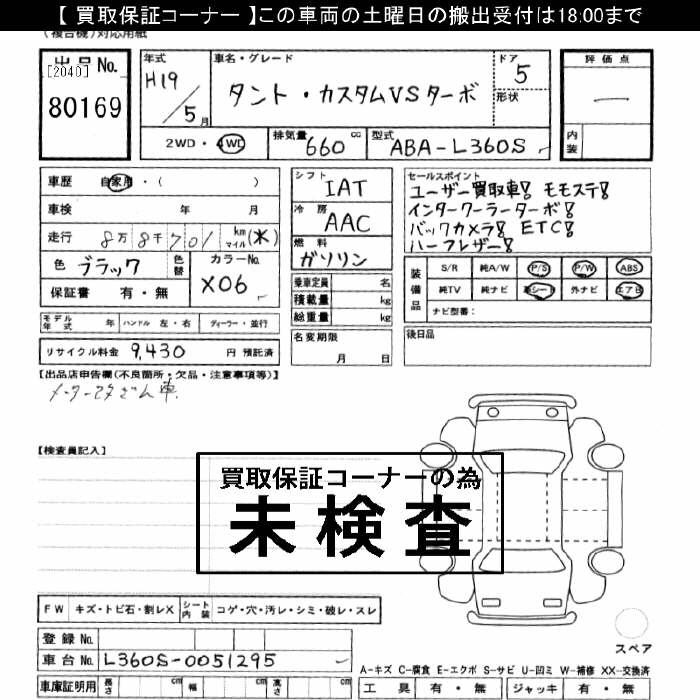 【 買取保証コーナー 】この車両の土曜日の搬出受付は18:00まで
(複合機)対応用紙
出品No.
[2040]
80169
年式
H19/5月
車名・グレード
タント・カスタムVSターボ
ドア
5
形状
評価点
内装
2WD・4WD
排気量 660 cc
型式 ABA-L360S
車歴 自家用・( )
車検 年 月
走行 8万8千701 km マイル (米)
色 ブラック 色替
カラーNo. X06
保証書 有・無
シフト IAT
冷房 AAC
燃料 ガソリン
乗車定員 名
積載量 kg
総重量 kg
セールスポイント
ユーザー買取車! モモステ!
インタークーラーターボ!
バックカメラ! ETC!
ハーフレザー!
装備品
S/R 純A/W P/S P/W ABS
純TV 純ナビ 革シート 外ナビ エアB
ナビ型番:
モデル年式 年 ハンドル 左・右 ディーラー・並行
名変期限 月 日
後日品
リサイクル料金 9,430 円 預託済
【出品店申告欄(不良箇所・欠品・注意事項等)】
【検査員記入】
買取保証コーナーの為
未検査
FW キズ・トビ石・割レX シート内装 コゲ・穴・汚レ・シミ・破レ・スレ
登録No.
車台No. L360S-0051295
車庫証明用 長さ cm 幅 cm 高さ cm
スペア
A-キズ C-腐食 E-エクボ S-サビ U-凹ミ W-補修 XX-交換済
工具 有・無 ジャッキ 有・無